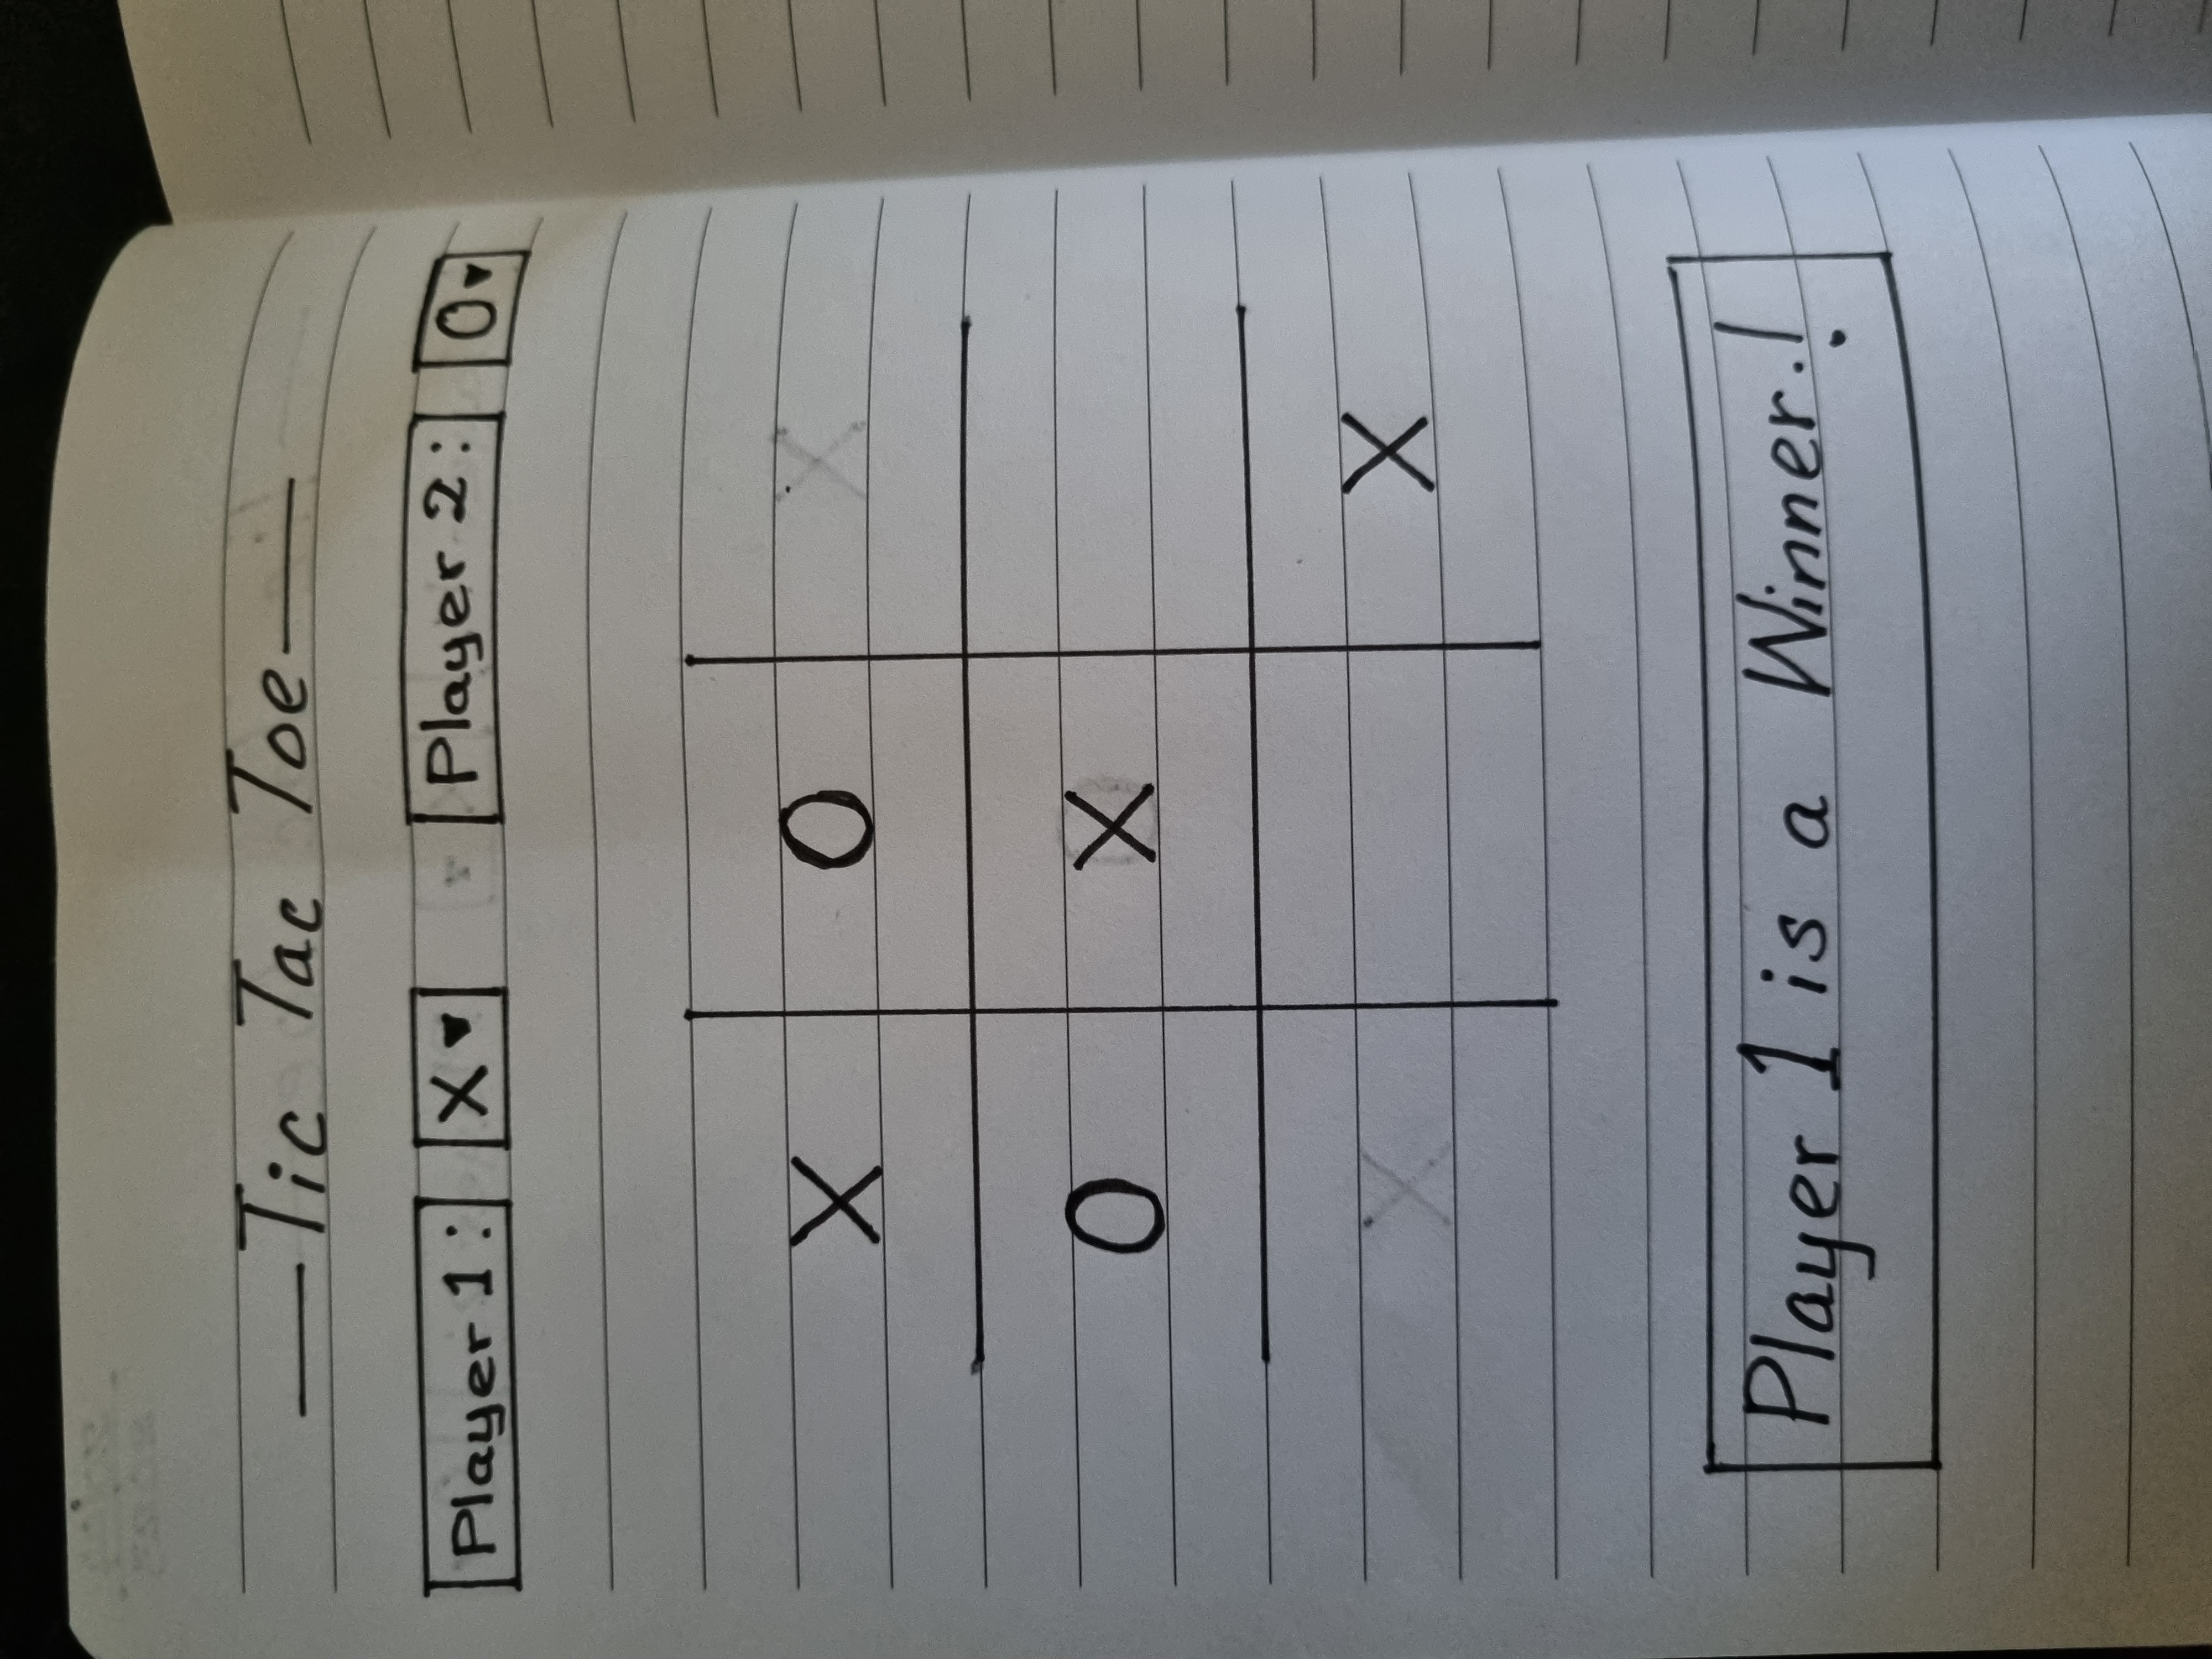 Tic Tac Toe
Player 1: X Player 2: O
X O
O X
X
Player 1 is a Winner.!